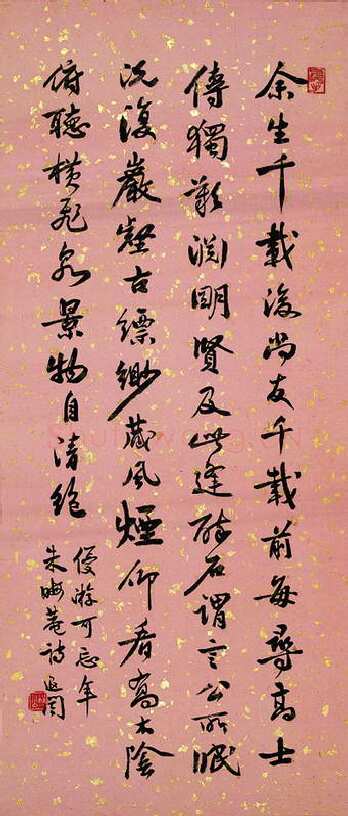 余生千載後尚友千載前每尋高士
傳獨歎淵明賢及此逢醉石謂言公所眠
況復巖壑古縹緲藏風煙仰看喬木陰
俯聽橫飛泉景物自清絕
優游可忘年
朱晦菴詩